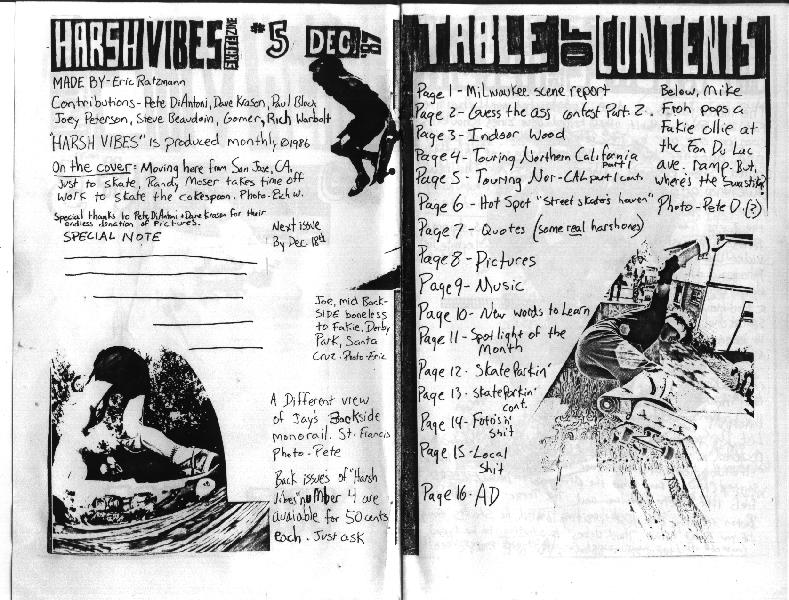 HARSH VIBES SKATEZINE #5 DEC. '87
MADE BY - Eric Ratzmann
Contributions - Pete DiAntoni, Dave Krason, Paul Block
Joey Peterson, Steve Beaudoin, Gomer, Rich Warbalt
"HARSH VIBES" is produced monthly, ©1986
On the cover: Moving here from San Jose, CA,
Just to skate, Randy Moser takes time off
work to skate the cokespoon. Photo - Rich W.
Special thanks to Pete DiAntoni + Dave Krason for their
endless donation of Pictures.
SPECIAL NOTE
Next issue
By Dec. 18th
Joe, mid Back-
SIDE boneless
to Fakie, Derby
Park, Santa
Cruz. Photo-Eric
A Different view
of Jay's Backside
monorail. St. Francis
Photo - Pete
Back issues of "Harsh
Vibes" number 4 are
available for 50 cents
each. Just ask
TABLE OF CONTENTS
Page 1 - Milwaukee scene report
Page 2 - Guess the ass contest Part 2.
Page 3 - Indoor Wood
Page 4 - Touring Northern California
Part 1
Page 5 - Touring Nor-CAL part 1 cont.
Page 6 - Hot Spot "Street skater's haven"
Page 7 - Quotes (some real harshones)
Page 8 - Pictures
Page 9 - Music
Page 10 - New words to Learn
Page 11 - Spotlight of the
Month
Page 12 - Skate Parkin'
Page 13 - Skate Parkin'
cont.
Page 14 -
Shit
Page 15 - Local
Shit
Page 16 - AD
Below, Mike
Froh pops a
Fakie ollie at
the Fon Du Lac
ave. ramp. But,
where's the swastika?
Photo - Pete D. (?)